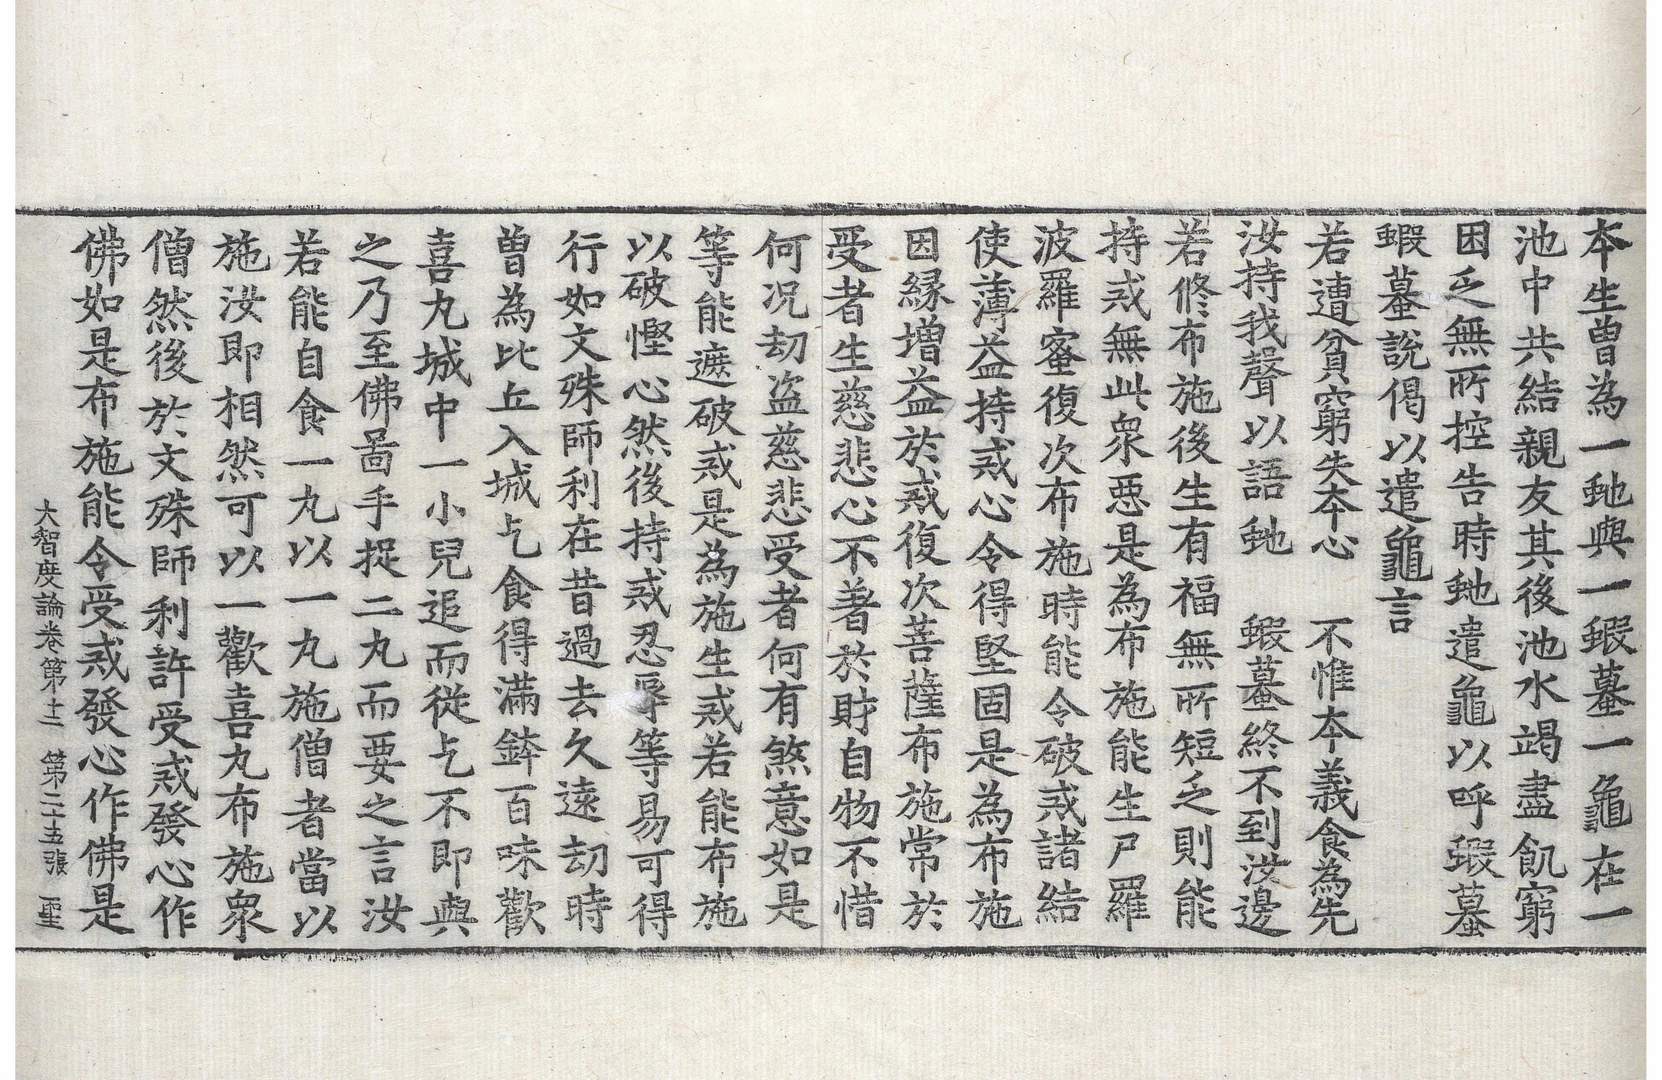 本生曾為一虵與一蝦蟇一龜在一
池中共結親友其後池水竭盡飢窮
困乏無所控告時虵遣龜以呼蝦蟇
蝦蟇說偈以遣龜言
若遭貧窮失本心　不惟本義食為先
汝持我聲以語虵　蝦蟇終不到汝邊
若修布施後生有福無所短乏則能
持戒無此衆惡是為布施能生尸羅
波羅蜜復次布施時能令破戒諸結
使薄益持戒心令得堅固是為布施
因緣增益於戒復次菩薩布施常於
受者生慈悲心不著於財自物不惜
何況劫盜慈悲受者何有煞意如是
等能遮破戒是為施生戒若能布施
以破慳心然後持戒忍辱等易可得
行如文殊師利在昔過去久遠劫時
曾為比丘入城乞食得滿鉢百味歡
喜丸城中一小兒追而從乞不即與
之乃至佛啚手捉二丸而要之言汝
若能自食一丸以一丸施僧者當以
施汝即相然可以一歡喜丸布施衆
僧然後於文殊師利許受戒發心作
佛如是布施能令受戒發心作佛是
大智度論卷第十二　第二十五張　聖